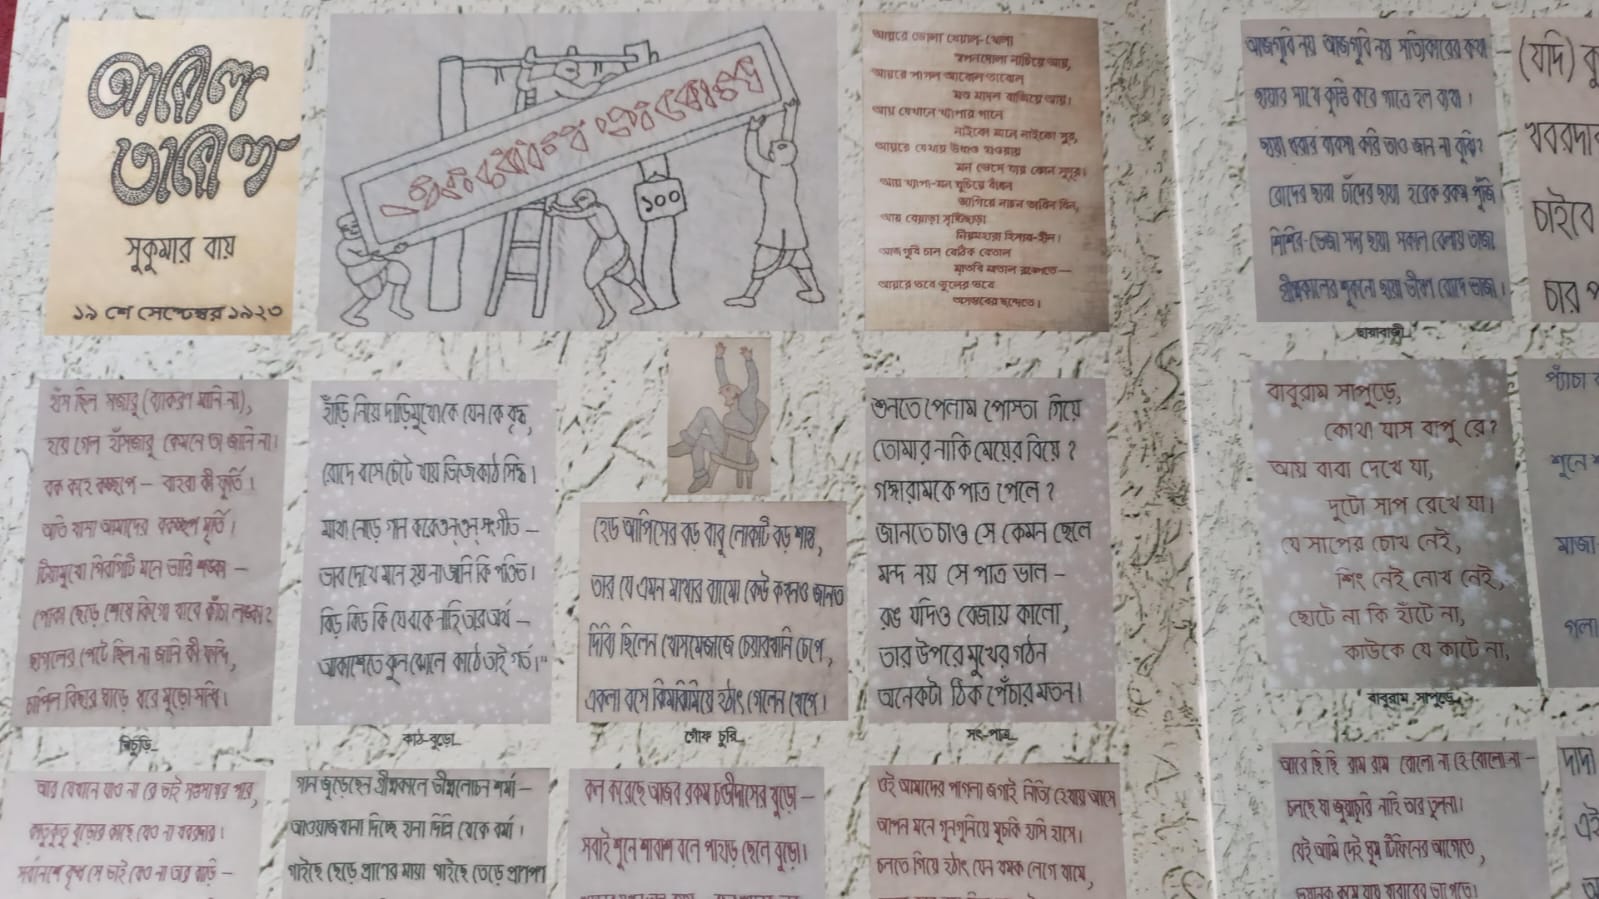 আবোল
তাবোল
সুকুমার রায়
১৯ শে সেপ্টেম্বর ১৯২৩
১০০
আয়রে ভোলা খেয়াল-খোলা
স্বপনদোলা নাচিয়ে আয়,
আয়রে পাগল আবোল তাবোল
মত্ত মাদল বাজিয়ে আয়।
আয় যেখানে খ্যাপার গানে
নাইকো মানে নাইকো সুর,
আয়রে যেথায় উধাও হাওয়ায়
মন ভেসে যায় কোন সুদূর।
আয় খ্যাপা-মন ঘুচিয়ে বাঁধন
জাগিয়ে নাচন তাধিন ধিন,
আয় বেয়াড়া সৃষ্টিছাড়া
নিয়মহারা হিসাব-হীন।
আজগুবি চাল বেঠিক বেতাল
মাতবি মাতাল রঙ্গেতে—
আয়রে তবে ভুলের ভবে
অসম্ভবের ছন্দেতে।
আজগুবি নয় আজগুবি নয় সত্যিকারের কথা
ছায়ার সাথে কুস্তি করে গাত্রে হল ব্যথা।
ছায়া ধরার ব্যবসা করি তাও জান না বুঝি?
রোদের ছায়া চাঁদের ছায়া হরেক রকম পুঁজি
শিশির-ভেজা সদ্য ছায়া সকাল বেলায় তাজা
গ্রীষ্মকালের শুকনো ছায়া ভীষণ রোদে ভাজা।
ছায়াবাজী..
(যদি)
খবরদার
চাইবে
চার
হাঁস ছিল সজারু (ব্যাকরণ মানি না),
হয়ে গেল হাঁসজারু কেমনে তা জানি না।
বক কহে কচ্ছপে— বাহবা কী ফুর্তি।
অতি খাসা আমাদের বকচ্ছপ মূর্তি।
টিয়ামুখো গিরগিটি মনে ভারি শঙ্কা—
পোকা ছেড়ে শেষে কিগো খাবে কাঁচা লঙ্কা?
ছাগলের পেটে ছিল না জানি কী ফন্দি,
চাপিল বিছার ঘাড়ে ধরে মুড়ো সন্ধি।
খিচুড়ি..
হাঁড়ি নিয়ে দাড়িমুখো কে যেন কে বৃদ্ধ,
রোদে বসে চেটে খায় ভিজে কাঠ সিদ্ধ।
মাথা নেড়ে গান করে গুন্ গুন্ সংগীত—
ভাব দেখে মনে হয় না জানি কি পণ্ডিত।
বিড় বিড় কি যে বকে নাহি তার অর্থ—
আকাশেতে ঝুল ঝোলে কাঠে তাই গর্ত।"
কাঠ-বুড়ো..
হেড আপিসের বড় বাবু লোকটি বড় শান্ত,
তার যে এমন মাথার ব্যামো কেউ কখনও জানত
দিব্যি ছিলেন খোসমেজাজে চেয়ারখানি চেপে,
একলা বসে ঝিমঝিমিয়ে হঠাৎ গেলেন খেপে।
গোঁফ চুরি..
শুনতে পেলাম পোস্তা গিয়ে
তোমার নাকি মেয়ের বিয়ে?
গঙ্গারামকে পাত্র পেলে?
জানতে চাও সে কেমন ছেলে
মন্দ নয় সে পাত্র ভাল—
রঙ যদিও বেজায় কালো,
তার উপরে মুখের গঠন
অনেকটা ঠিক পেঁচার মতন।
সৎ-পাত্র..
বাবুরাম সাপুড়ে,
কোথা যাস বাপু রে?
আয় বাবা দেখে যা,
দুটো সাপ রেখে যা।
যে সাপের চোখ নেই,
শিং নেই নোখ নেই,
ছোটে না কি হাঁটে না,
কাউকে যে কাটে না,
বাবুরাম সাপুড়ে..
প্যাঁচা
শুনে
মাজা
গলা
আর যেখানে যাও না রে ভাই সপ্তসাগর পার,
কাতুকুতু বুড়োর কাছে যেও না খবরদার।
সর্বনেশে বৃদ্ধ সে ভাই যেও না তার বাড়ি—
গান জুড়েছেন গ্রীষ্মকালে ভীষ্মলোচন শর্মা—
আওয়াজখানা দিচ্ছে হানা দিল্লি থেকে বর্মা।
গাইছে ছেড়ে প্রাণের মায়া গাইছে তেড়ে প্রাণপণ
কল করেছে আজব রকম চণ্ডীদাসের খুড়ো—
সবাই শুনে শাবাশ বলে পাড়ার ছেলে বুড়ো।
ওই আমাদের পাগলা জগাই নিত্যি হেথায় আসে
আপন মনে গুনগুনিয়ে মুচকি হাসি হাসে।
চলতে গিয়ে হঠাৎ যেন থমক লেগে থামে,
আরে ছি ছি রাম রাম বোলো না হে বোলো না—
চলছে যা জুয়াচুরি নাহি তার তুলনা।
যেই আমি দেই ঘুম টিফিনের আগেতে,
ভয়ানক কমে যায় খাবারের ভাগেতে।
দাদা
এই